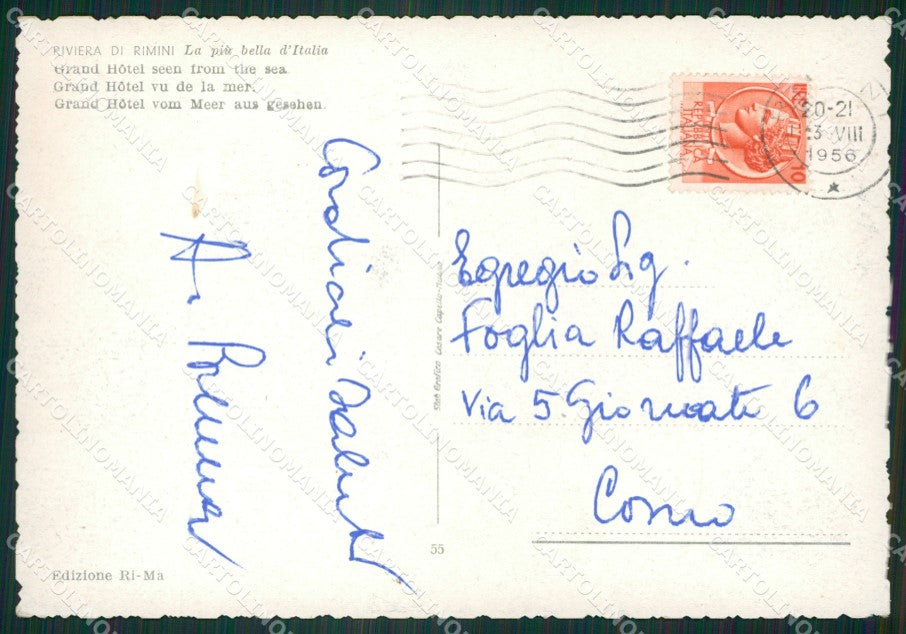 RIVIERA DI RIMINI La più bella d'Italia
Grand Hôtel seen from the sea.
Grand Hôtel vu de la mer.
Grand Hôtel vom Meer aus gesehen.
20-21
VIII
1956
REPUBBLICA
ITALIANA
10
Cordiali Saluti
Egregio Sig.
Foglia Raffaele
Via 5 Giornate 6
Como
Stab Grafico Cesare Capello-Milano
55
Edizione Ri-Ma
CARTOLINOMANIA